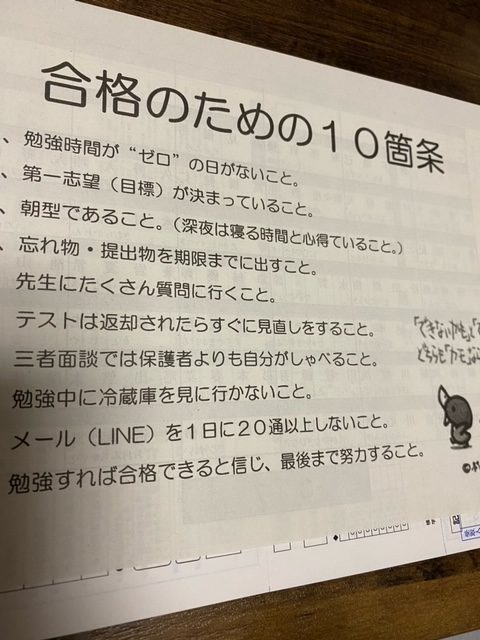 合格のための１０箇条
、勉強時間が“ゼロ”の日がないこと。
、第一志望（目標）が決まっていること。
、朝型であること。（深夜は寝る時間と心得ていること。）
、忘れ物・提出物を期限までに出すこと。
先生にたくさん質問に行くこと。
テストは返却されたらすぐに見直しをすること。
三者面談では保護者よりも自分がしゃべること。
勉強中に冷蔵庫を見に行かないこと。
メール（LINE）を１日に２０通以上しないこと。
勉強すれば合格できると信じ、最後まで努力すること。
「できないカモ」と「
どちらも「カモ」な